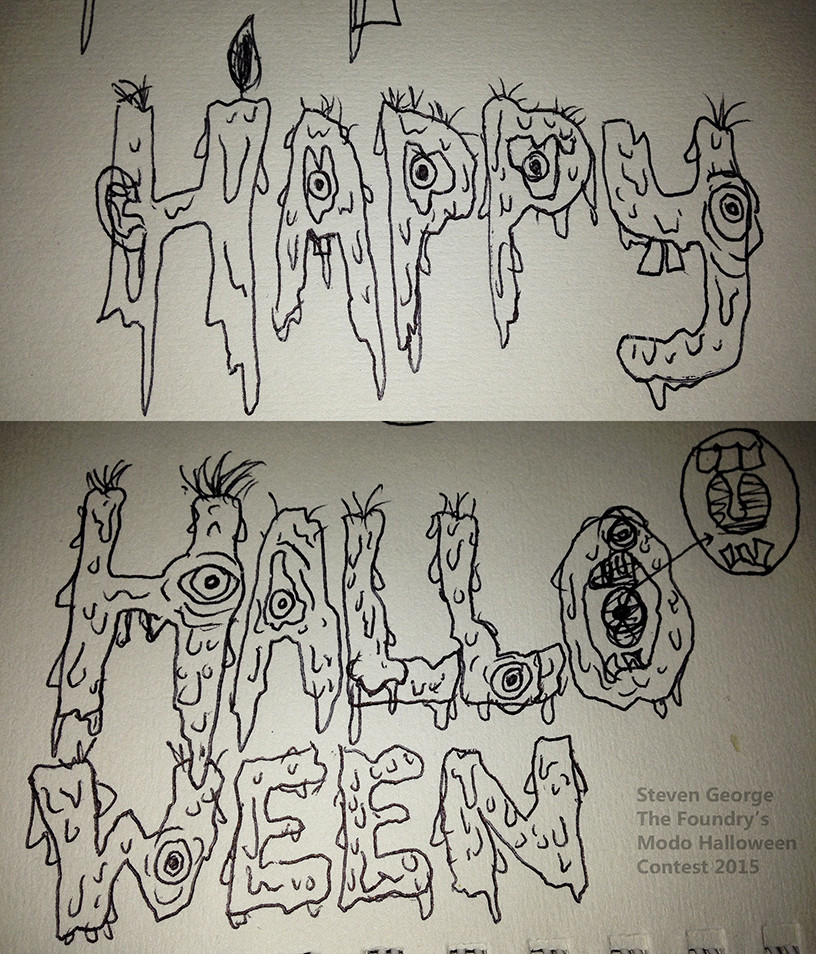 HAPPY
HALLO
WEEN
Steven George
The Foundry's
Modo Halloween
Contest 2015